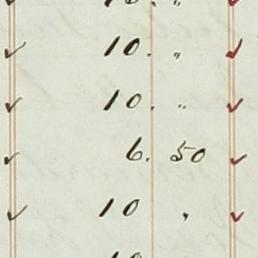 ✓ 10. „ ✓
✓ 10. „ ✓
✓ 6. 50 ✓
✓ 10 , ✓